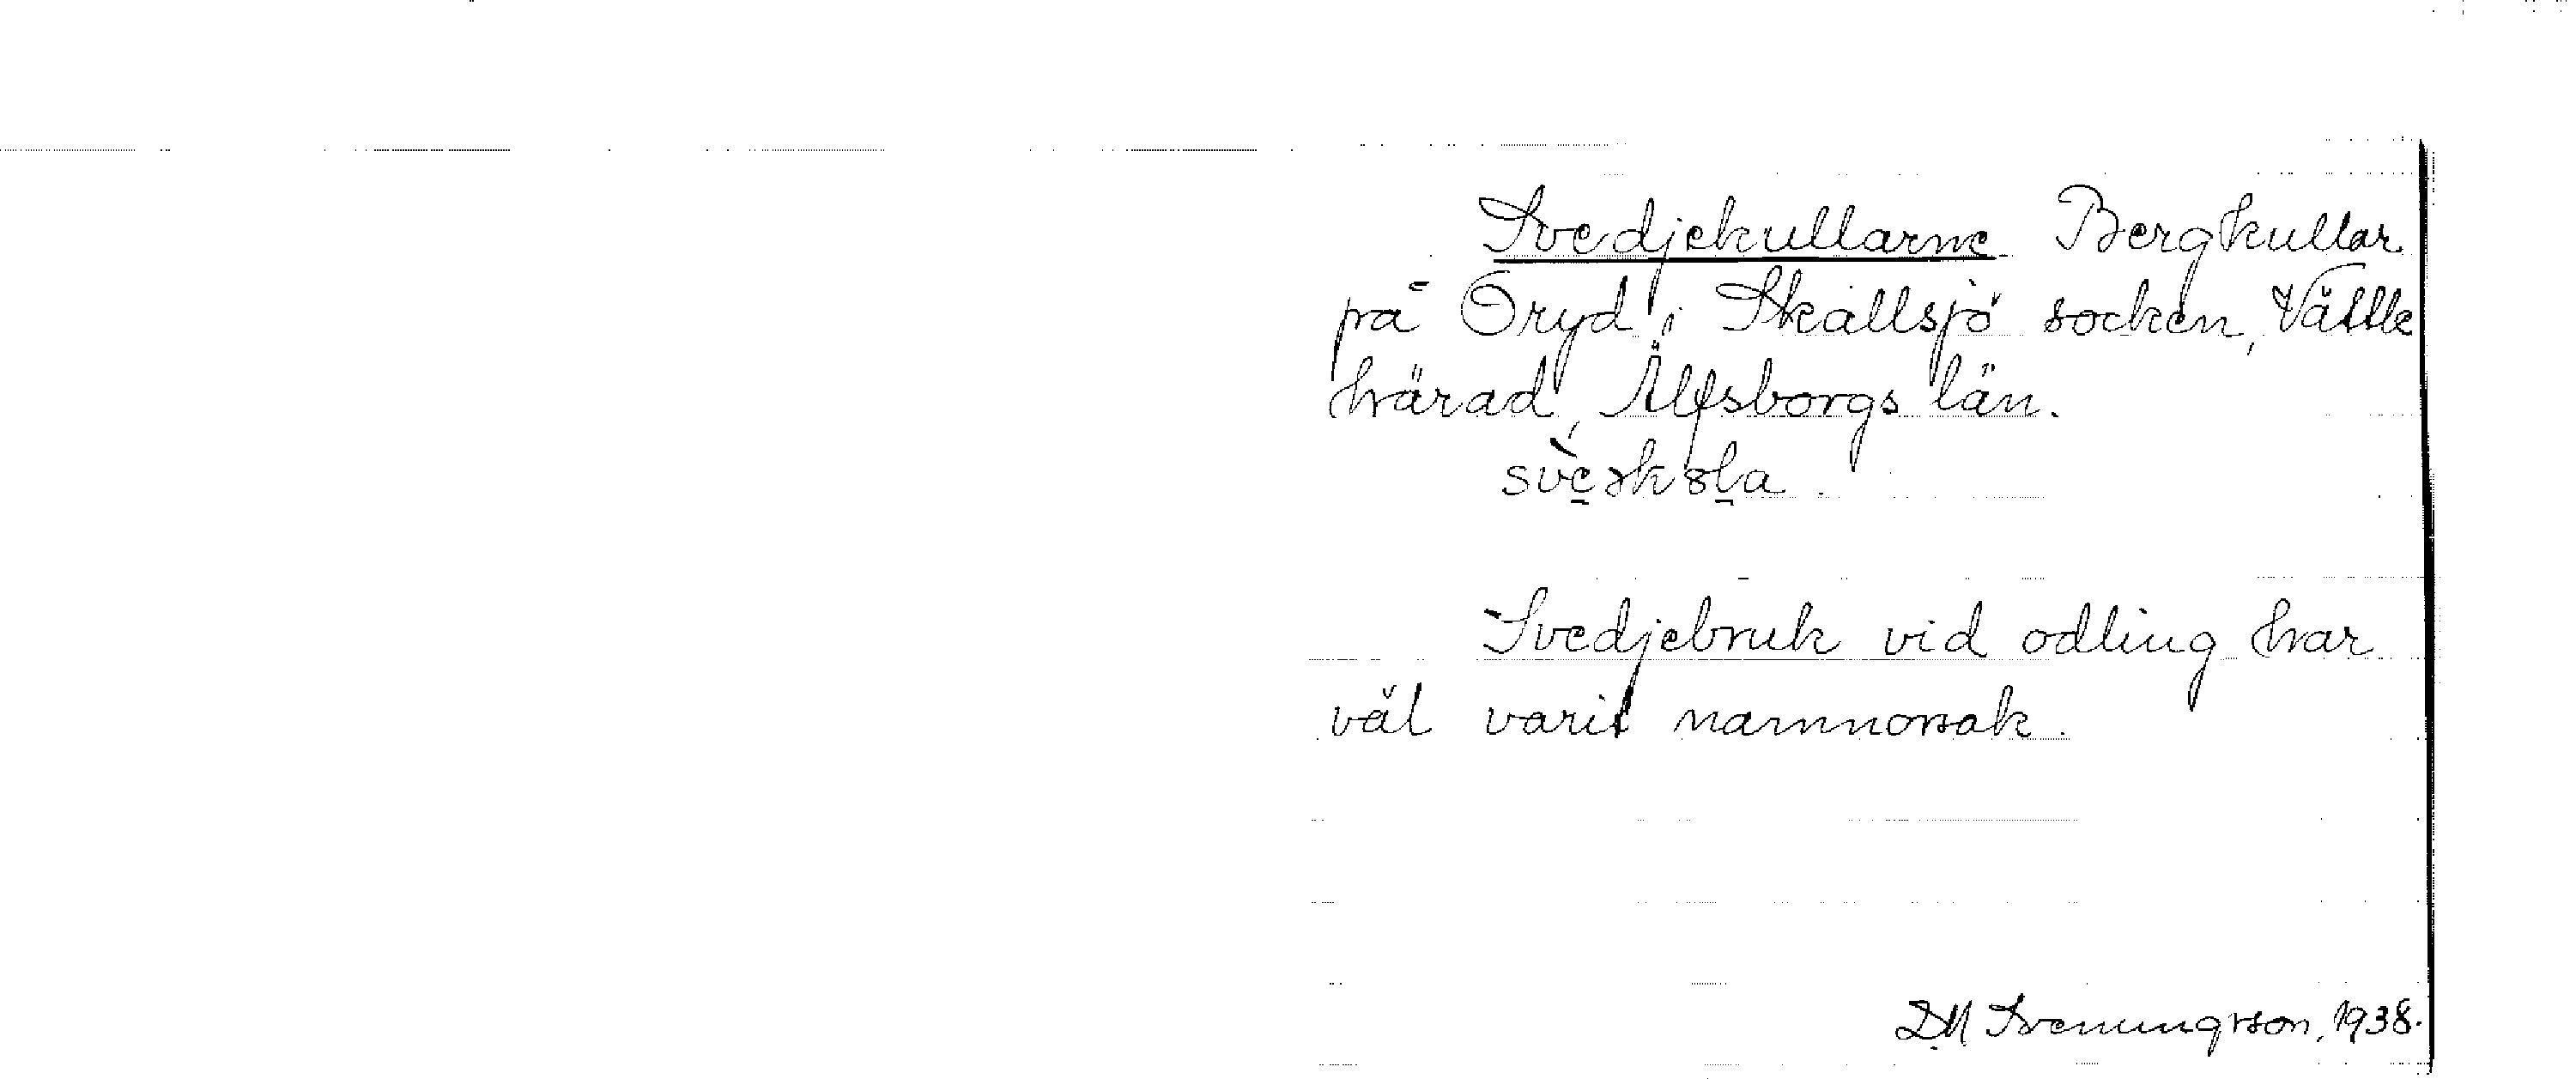 Svedjekullarne Bergkullar
på Öryd i Skallsjö socken, Vättle
härad, Älfsborgs län.
Svedjebruk vid odling har
väl varit namnorsak.
D M Svenungsson, 1938.